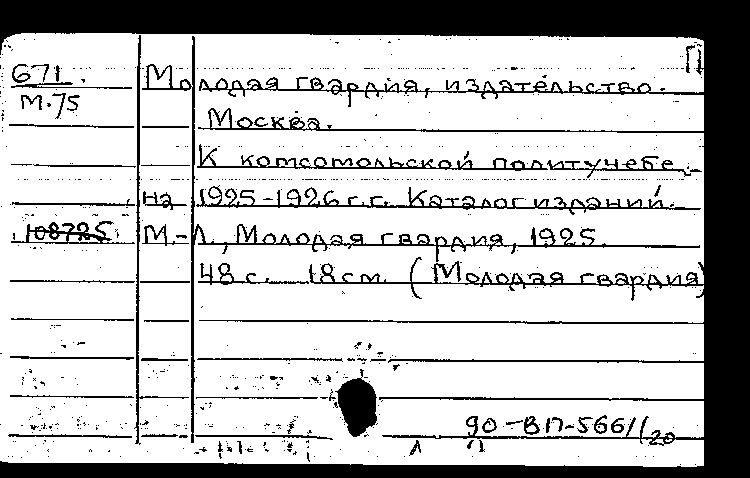 П
671. Молодая гвардия, издательство.
М.75
Москва.
К комсомольской политучебе,
на 1925-1926 г.г. Каталог изданий.-
108725 М.-Л., Молодая гвардия, 1925.
48 с. 18 см. (Молодая гвардия)
90-ВП-5661/20